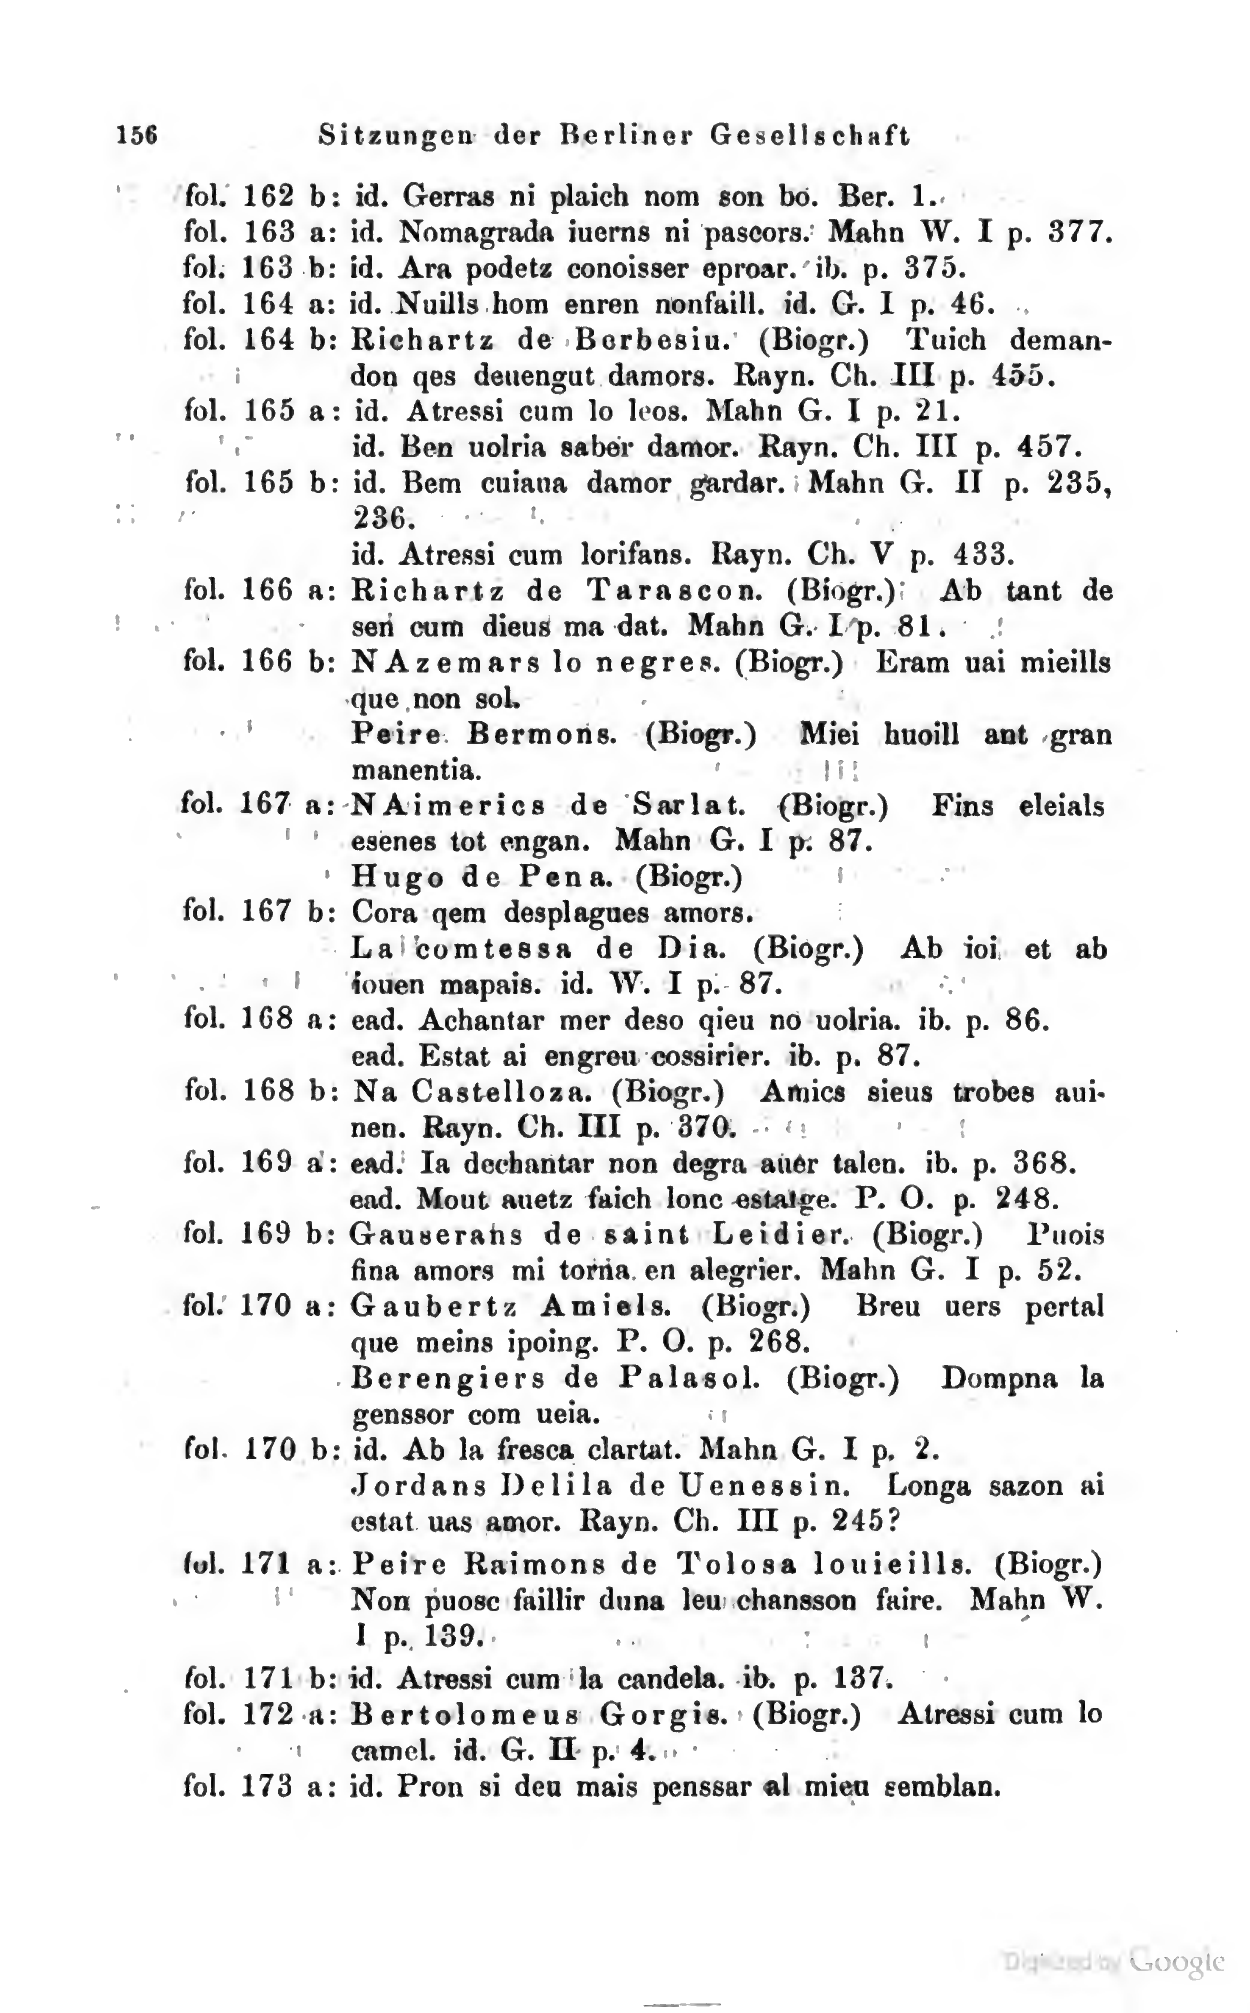 156 Sitzungen der Berliner Gesellschaft
fol. 162 b: id. Gerras ni plaich nom son bo. Ber. 1.
fol. 163 a: id. Nomagrada iuerns ni pascors. Mahn W. I p. 377.
fol. 163 b: id. Ara podetz conoisser eproar. ib. p. 375.
fol. 164 a: id. Nuills hom enren nonfaill. id. G. I p. 46.
fol. 164 b: Richartz de Berbesiu. (Biogr.) Tuich deman-
don qes deuengut damors. Rayn. Ch. III p. 455.
fol. 165 a: id. Atressi cum lo leos. Mahn G. I p. 21.
id. Ben uolria saber damor. Rayn. Ch. III p. 457.
fol. 165 b: id. Bem cuiaua damor gardar. Mahn G. II p. 235,
236.
id. Atressi cum lorifans. Rayn. Ch. V p. 433.
fol. 166 a: Richartz de Tarascon. (Biogr.) Ab tant de
sen cum dieus ma dat. Mahn G. I p. 81.
fol. 166 b: NAzemars lo negres. (Biogr.) Eram uai mieills
que non sol.
Peire Bermons. (Biogr.) Miei huoill ant gran
manentia.
fol. 167 a: NAimerics de Sarlat. (Biogr.) Fins eleials
esenes tot engan. Mahn G. I p. 87.
Hugo de Pena. (Biogr.)
fol. 167 b: Cora qem desplagues amors.
La comtessa de Dia. (Biogr.) Ab ioi et ab
iouen mapais. id. W. I p. 87.
fol. 168 a: ead. Achantar mer deso qieu no uolria. ib. p. 86.
ead. Estat ai engreu cossirier. ib. p. 87.
fol. 168 b: Na Castelloza. (Biogr.) Amics sieus trobes aui-
nen. Rayn. Ch. III p. 370.
fol. 169 a: ead. Ia dechantar non degra auer talen. ib. p. 368.
ead. Mout auetz faich lonc estatge. P. O. p. 248.
fol. 169 b: Gauserans de saint Leidier. (Biogr.) Puois
fina amors mi torna en alegrier. Mahn G. I p. 52.
fol. 170 a: Gaubertz Amiels. (Biogr.) Breu uers pertal
que meins ipoing. P. O. p. 268.
Berengiers de Palasol. (Biogr.) Dompna la
genssor com ueia.
fol. 170 b: id. Ab la fresca clartat. Mahn G. I p. 2.
Jordans Delila de Uenessin. Longa sazon ai
estat uas amor. Rayn. Ch. III p. 245?
fol. 171 a: Peire Raimons de Tolosa louieills. (Biogr.)
Non puosc faillir duna leu chansson faire. Mahn W.
I p. 139.
fol. 171 b: id. Atressi cum la candela. ib. p. 137.
fol. 172 a: Bertolomeus Gorgis. (Biogr.) Atressi cum lo
camel. id. G. II p. 4.
fol. 173 a: id. Pron si deu mais penssar al mieu semblan.
Digitized by Google